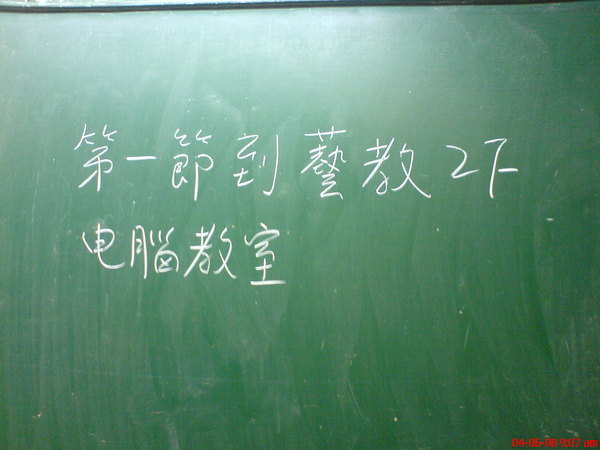 第一節到藝教2F
电腦教室
04-06-08 9:07 am